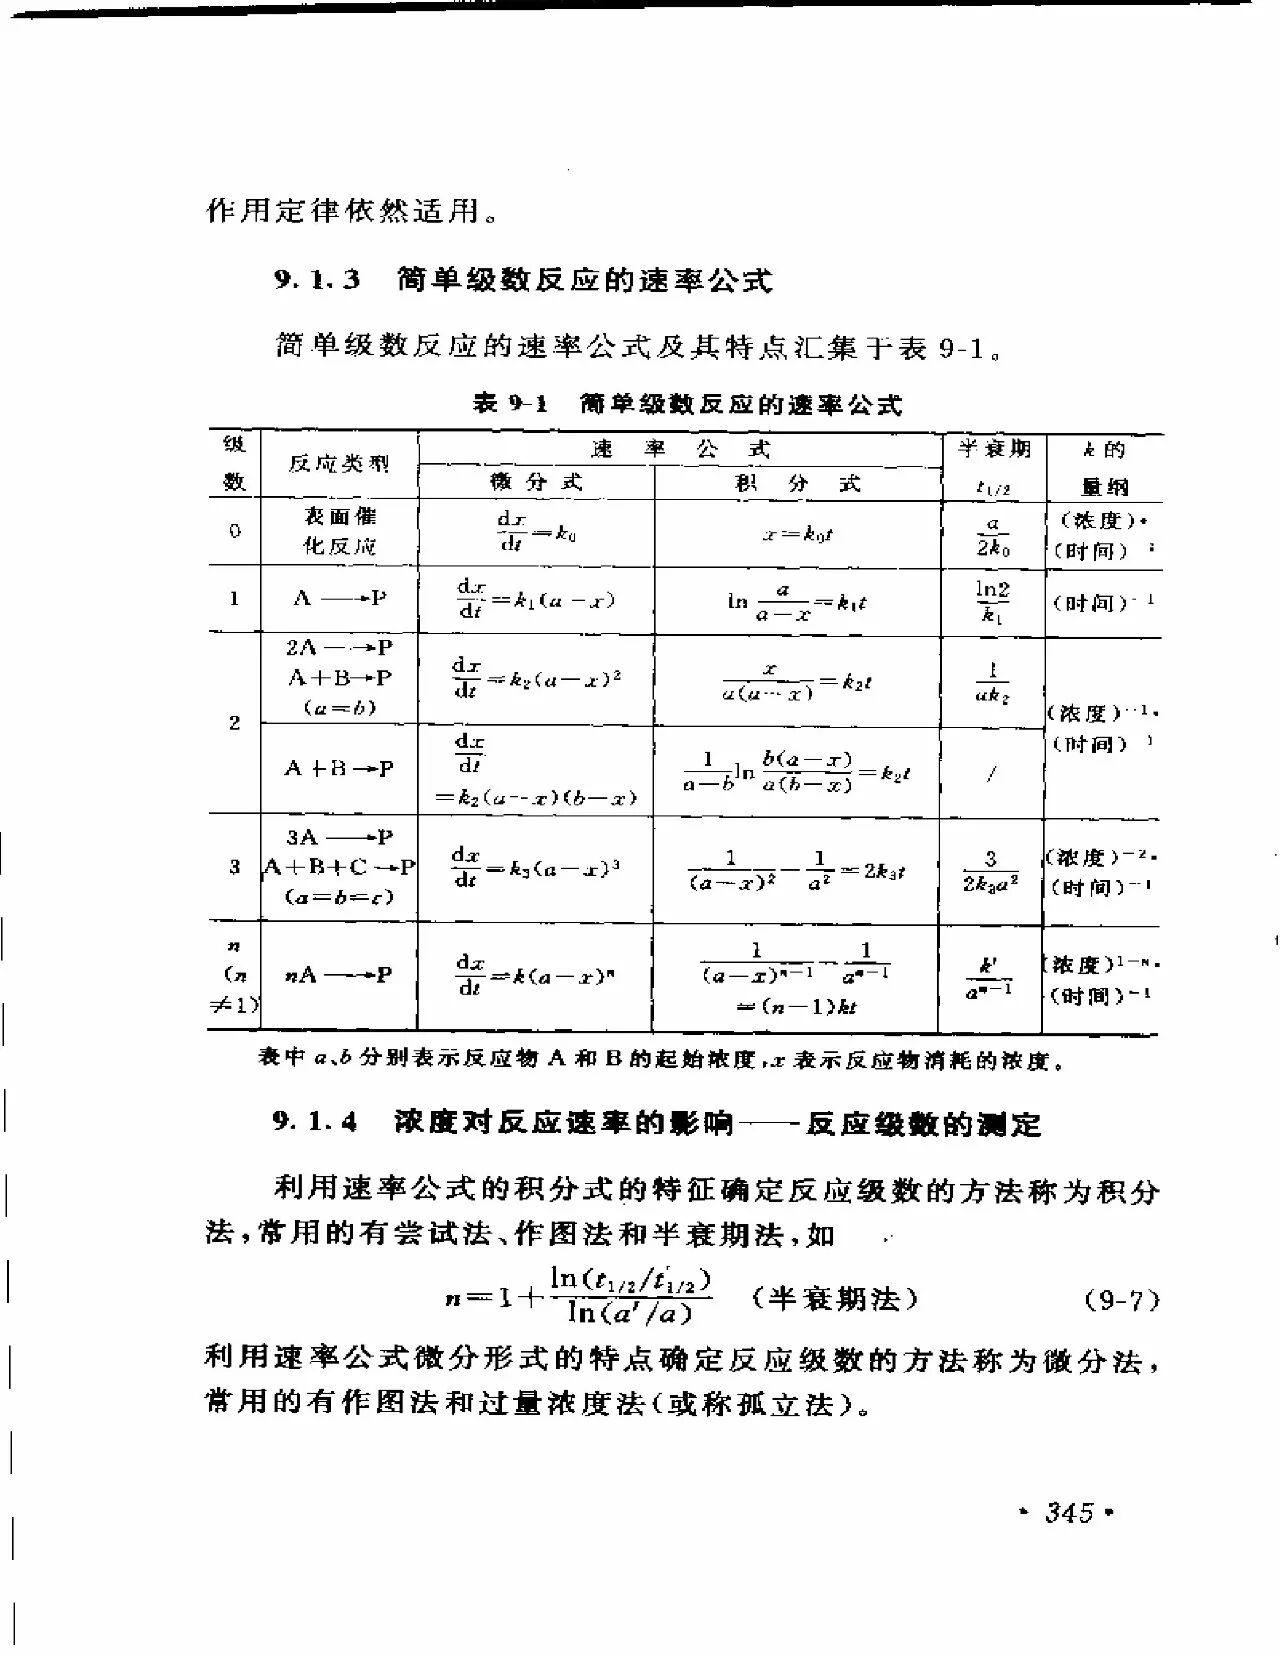 作用定律依然适用。
9.1.3 简单级数反应的速率公式
简单级数反应的速率公式及其特点汇集于表 9-1。
表 9-1 简单级数反应的速率公式
级数 反应类型 速率公式 半衰期 t₁/₂ k 的量纲
微分式 积分式
0 表面催化反应 dx/dt=k₀ x=k₀t a/2k₀ (浓度)·(时间)⁻¹
1 A→P dx/dt=k₁(a-x) ln a/(a-x)=k₁t ln2/k₁ (时间)⁻¹
2 2A→P A+B→P (a=b) dx/dt=k₂(a-x)² x/a(a-x)=k₂t 1/ak₂ (浓度)⁻¹·(时间)⁻¹
A+B→P dx/dt=k₂(a-x)(b-x) 1/(a-b) ln b(a-x)/a(b-x)=k₂t /
3 3A→P A+B+C→P (a=b=c) dx/dt=k₃(a-x)³ 1/(a-x)²-1/a²=2k₃t 3/2k₃a² (浓度)⁻²·(时间)⁻¹
n (n≠1) nA→P dx/dt=k(a-x)ⁿ 1/(a-x)ⁿ⁻¹-1/aⁿ⁻¹=(n-1)kt k'/aⁿ⁻¹ (浓度)¹⁻ⁿ·(时间)⁻¹
表中 a、b 分别表示反应物 A 和 B 的起始浓度,x 表示反应物消耗的浓度。
9.1.4 浓度对反应速率的影响——反应级数的测定
利用速率公式的积分式的特征确定反应级数的方法称为积分
法,常用的有尝试法、作图法和半衰期法,如
n=1+ln(t₁/₂/t'₁/₂)/ln(a'/a) (半衰期法) (9-7)
利用速率公式微分形式的特点确定反应级数的方法称为微分法,
常用的有作图法和过量浓度法(或称孤立法)。
· 345 ·